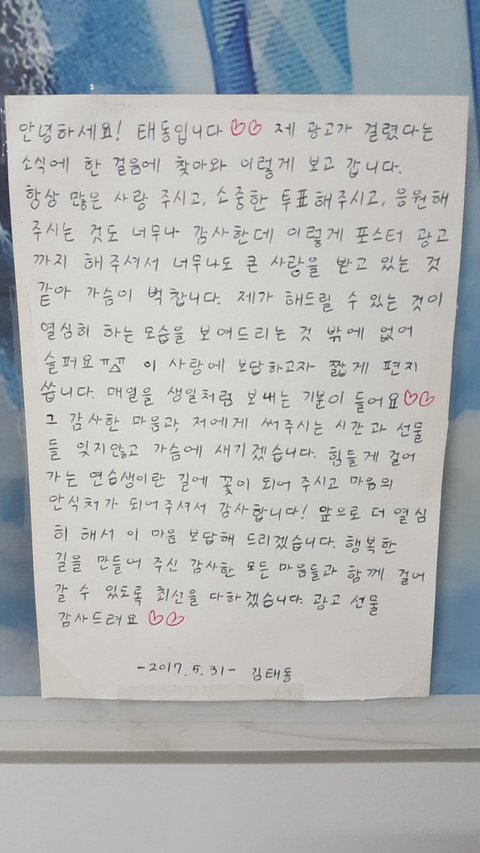 안녕하세요! 태동입니다♡♡ 제 광고가 걸렸다는
소식에 한 걸음에 찾아와 이렇게 보고 갑니다.
항상 많은 사랑 주시고, 소중한 투표해주시고, 응원해
주시는 것도 너무나 감사한데 이렇게 포스터 광고
까지 해주셔서 너무나도 큰 사랑을 받고 있는 것
같아 가슴이 벅찹니다. 제가 해드릴 수 있는 것이
열심히 하는 모습을 보여드리는 것 밖에 없어
슬퍼요ㅠ△ㅠ 이 사랑에 보답하고자 짧게 편지
씁니다. 매일을 생일처럼 보내는 기분이 들어요♡♡
그 감사한 마음과, 저에게 써주시는 시간과 선물
들 잊지않고 가슴에 새기겠습니다. 힘들게 걸어
가는 연습생이란 길에 꽃이 되어 주시고 마음의
안식처가 되어주셔서 감사합니다! 앞으로 더 열심
히 해서 이 마음 보답해 드리겠습니다. 행복한
길을 만들어 주신 감사한 모든 마음들과 함께 걸어
갈 수 있도록 최선을 다하겠습니다. 광고 선물
감사드려요 ♡♡
-2017.5.31- 김태동